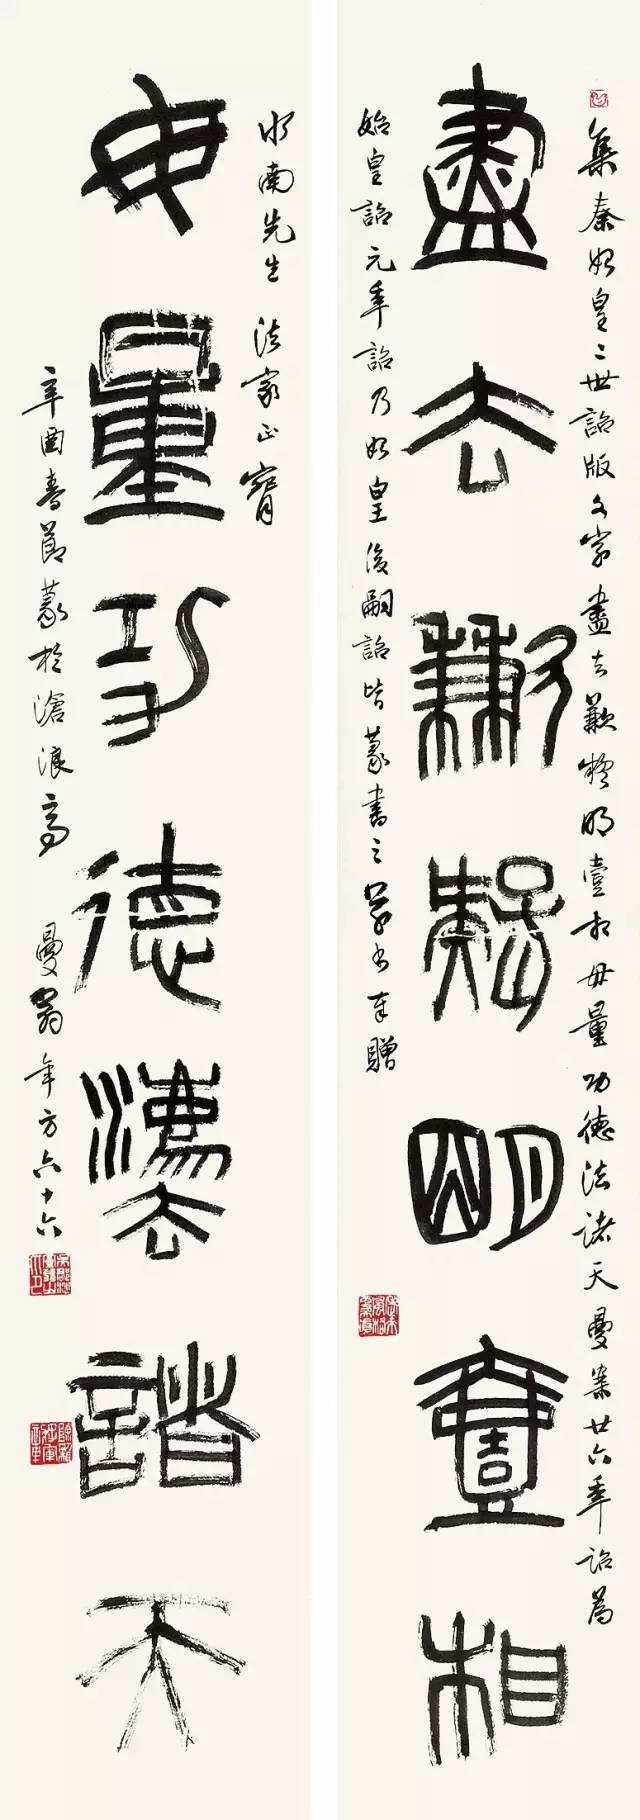 集秦始皇二世詔版文字盡去歉疑明壹相毋量功德法諸天曼案廿六年詔為
盡去歉疑明壹相
始皇詔元年詔乃始皇後嗣詔皆篆書之 奉贈
水南先生 法家正
毋量功德灋諸天
辛酉春節篆於滄浪亭 曼翁年方六十六